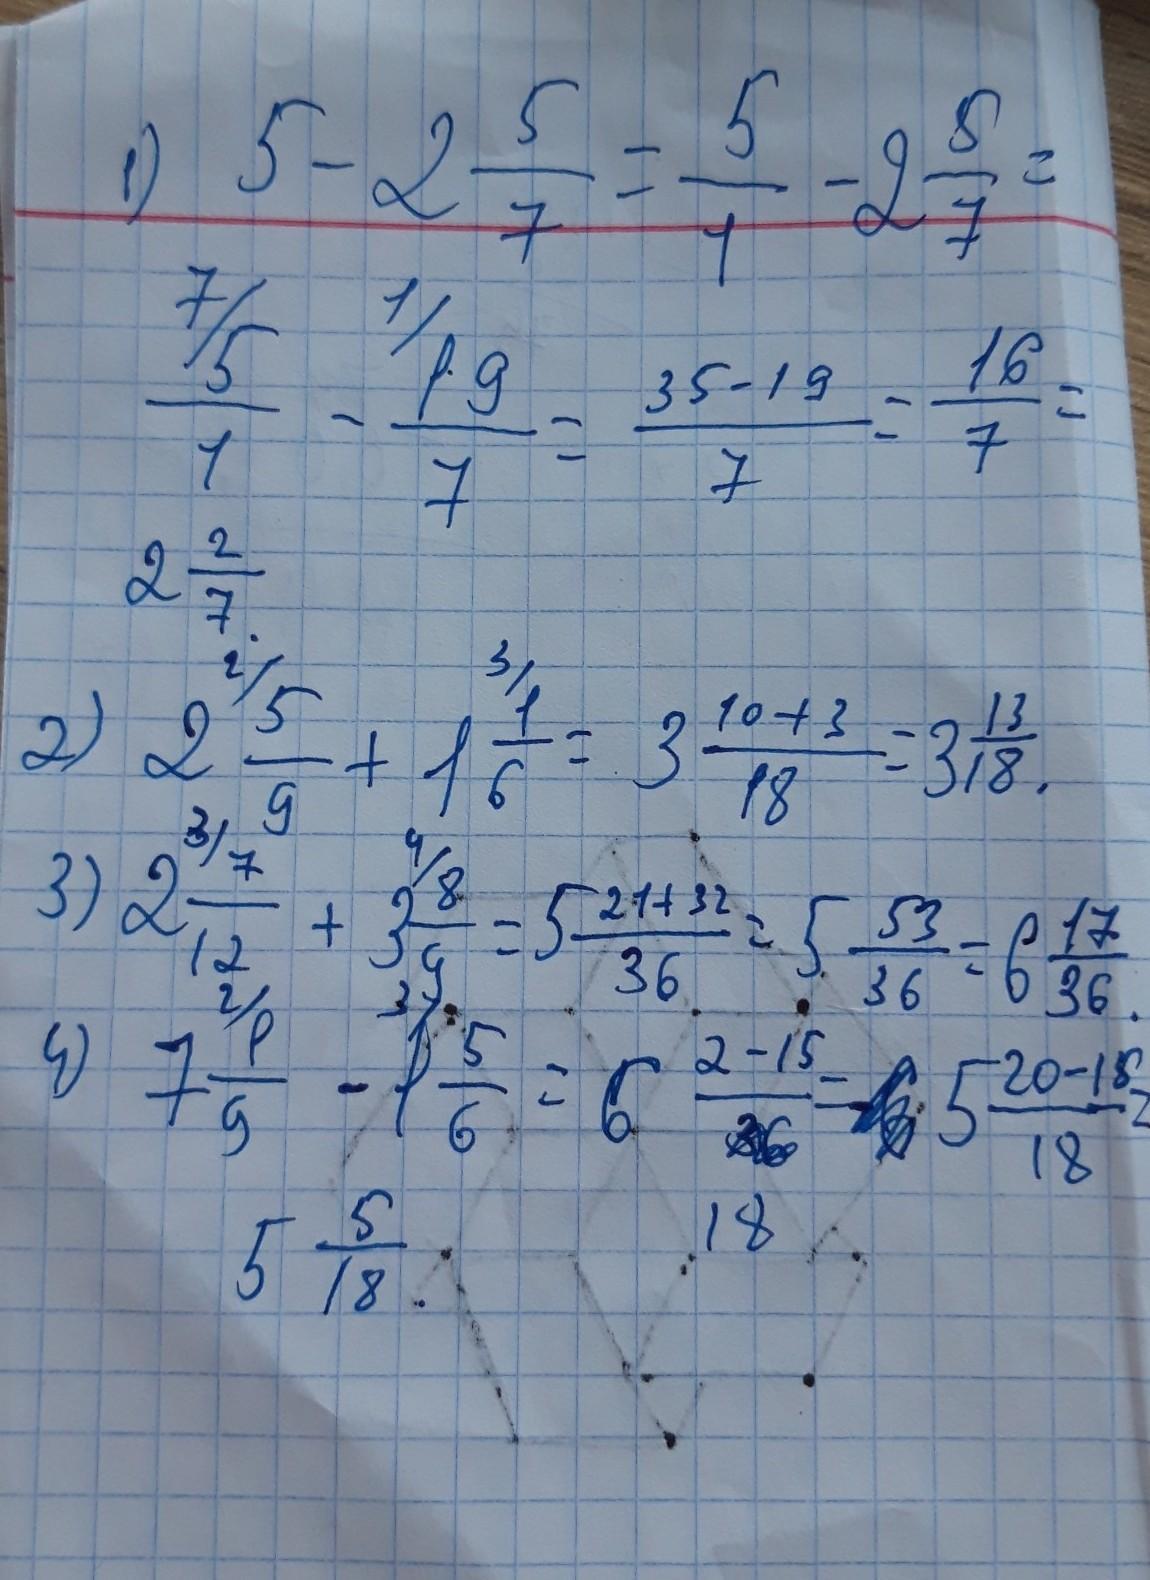 1) 5 - 2 5/7 = 5/1 - 2 5/7 =
7/ 5/1 - 1/ 19/7 = 35-19/7 = 16/7 =
2 2/7.
2) 2 2/ 5/9 + 1 3/ 1/6 = 3 10+3/18 = 3 13/18.
3) 2 3/ 7/12 + 3 4/ 8/9 = 5 21+32/36 = 5 53/36 = 6 17/36.
4) 7 2/ 1/9 - 1 3/ 5/6 = 6 2-15/18 = 5 20-15/18 =
5 5/18.